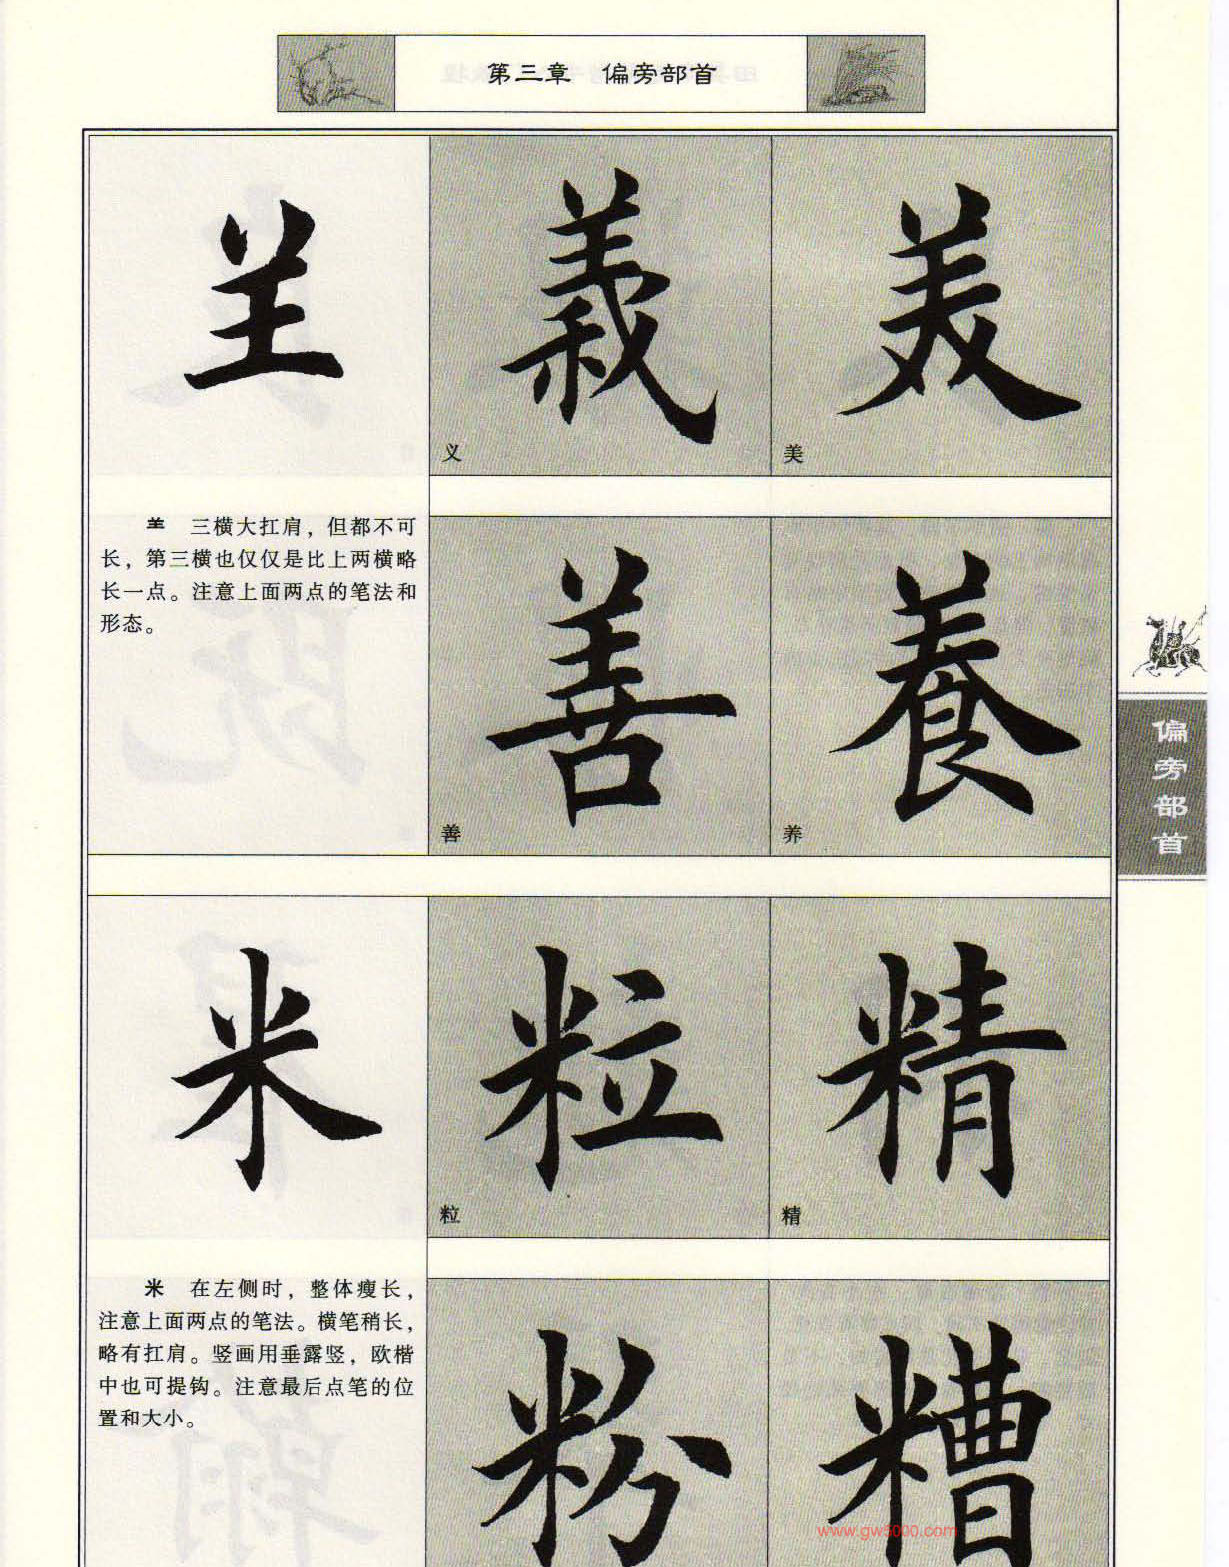 第三章 偏旁部首
義 美
义 美
⺷ 三横大扛肩，但都不可
长，第三横也仅仅是比上两横略
长一点。注意上面两点的笔法和
形态。
善 養
善 养
偏旁部首
米 粒 精
粒 精
米 在左侧时，整体瘦长，
注意上面两点的笔法。横笔稍长，
略有扛肩。竖画用垂露竖，欧楷
中也可提钩。注意最后点笔的位
置和大小。
粉 糟
www.gw5000.com